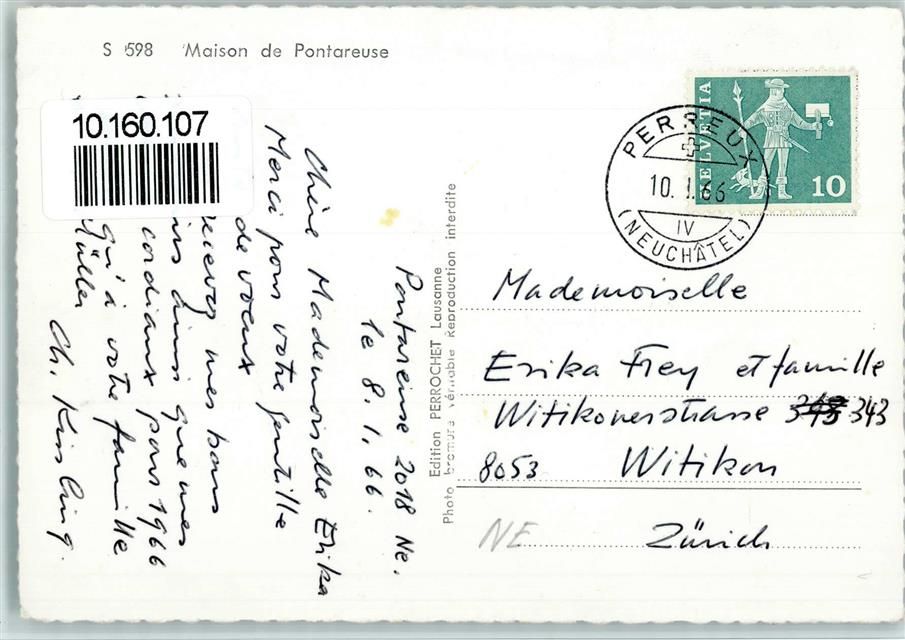 S 598 Maison de Pontareuse
10.160.107
HELVETIA
10
PERREUX
10. I. 66
IV
(NEUCHÂTEL)
Pontareuse 2018 Ne.
le 8. 1. 66.
Chère Mademoiselle Erika
Merci pour votre gentille
de voeux
recevez mes bons
ainsi que mes
cordiaux pour 1966
qu'à votre famille
Müller
Ch. Kissling.
Edition PERROCHET Lausanne
Photo bromure véritable Reproduction interdite
Mademoiselle
Erika Frey et famille
Witikonerstrasse 343 343
8053 Witikon
NE Zürich